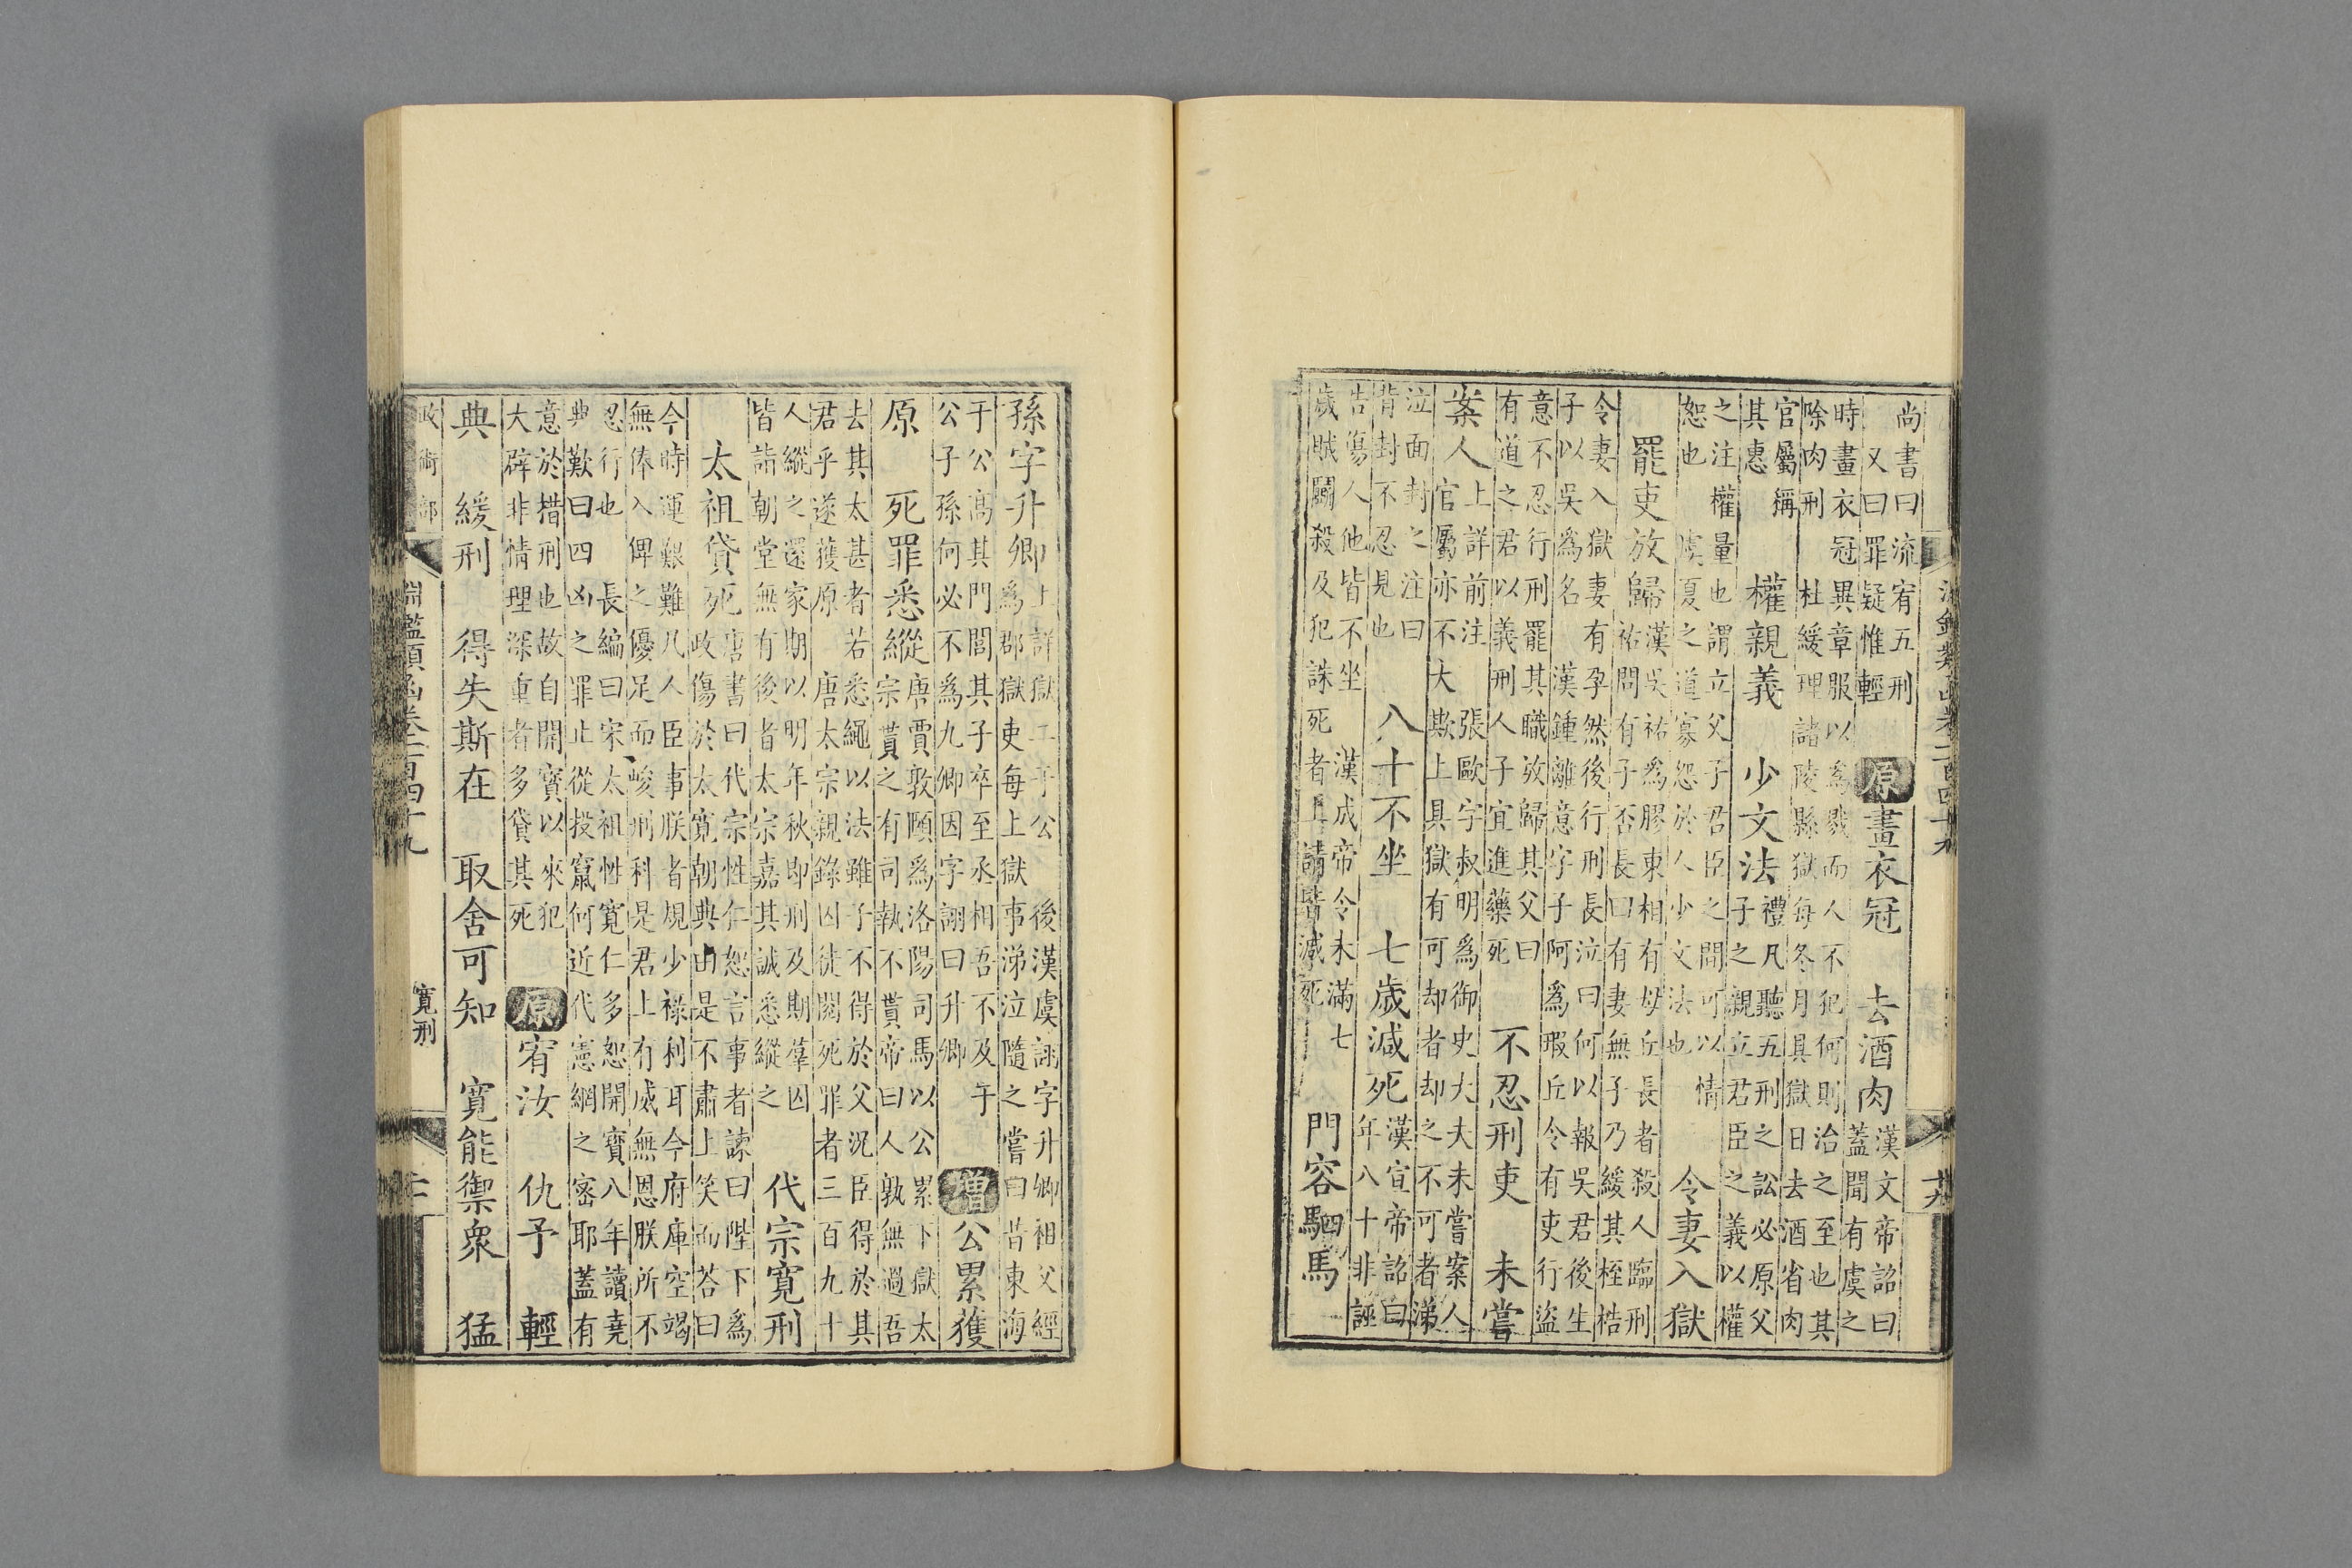 淵鑑類函卷二百四十九
尚書曰流宥五刑
又曰罪疑惟輕
原畫衣冠 去酒肉
漢文帝詔曰
蓋聞有虞之
時畫衣冠異章服以爲戮而人不犯何則治之至也其
除肉刑 杜緩理諸陵縣獄每冬月具獄日去酒省肉
官屬稱
其惠
權親義 少文法
禮凡聽五刑之訟必原父
子之親立君臣之義以權
之注權量也謂立父子君臣之間可以情
恕也 虞夏之道寡怨於人少文法也
令妻入獄
罷吏放歸
漢吳祐爲膠東相有毋丘長者殺人臨刑
祐問有子否長曰有妻無子乃緩其桎梏
令妻入獄妻有孕然後行刑長泣曰何以報吳君後生
子以吳爲名 漢鍾離意字子阿爲瑕丘令有吏行盜
意不忍行刑罷其職放歸其父曰
有道之君以義刑人子宜進藥死
不忍刑吏 未嘗
案人
上詳前注 張歐字叔明爲御史大夫未嘗案人
官屬亦不大欺上具獄有可却者却之不可者涕
泣面封之注曰
背封不忍見也
八十不坐 七歲減死
漢宣帝詔曰
年八十非誣
告傷人他皆不坐 漢成帝令未滿七
歲賊鬭殺及犯誅死者上請皆減死
門容駟馬
孫字升卿
上詳獄二于公 後漢虞詡字升卿祖父經
爲郡獄吏每上獄事涕泣隨之嘗曰昔東海
于公高其門閭其子卒至丞相吾不及于
公子孫何必不爲九卿因字詡曰升卿
增公累獲
原 死罪悉縱
唐賈敦頤爲洛陽司馬以公累下獄太
宗貰之有司執不貰帝曰人孰無過吾
去其太甚者若悉繩以法雖子不得於父況臣得於其
君乎遂獲原 唐太宗親錄囚徒閱死罪者三百九十
人縱之還家期以明年秋即刑及期羣囚
皆詣朝堂無有後者太宗嘉其誠悉縱之
代宗寬刑
太祖貸死
唐書曰代宗性仁恕言事者諫曰陛下爲
政傷於太寬朝典由是不肅上笑而荅曰
今時運艱難凡人臣事朕者規少祿利耳今府庫空竭
無俸入俾之優足而峻刑科是君上有威無恩朕所不
忍行也 長編曰宋太祖性寬仁多恕開寶八年讀堯
典歎曰四凶之罪止從投竄何近代憲網之密耶蓋有
意於措刑也故自開寶以來犯
大辟非情理深重者多貸其死
原宥汝 仇予 輕
典 緩刑 得失斯在 取舍可知 寬能禦衆 猛
政術部
淵鑑類函卷二百四十九
寬刑